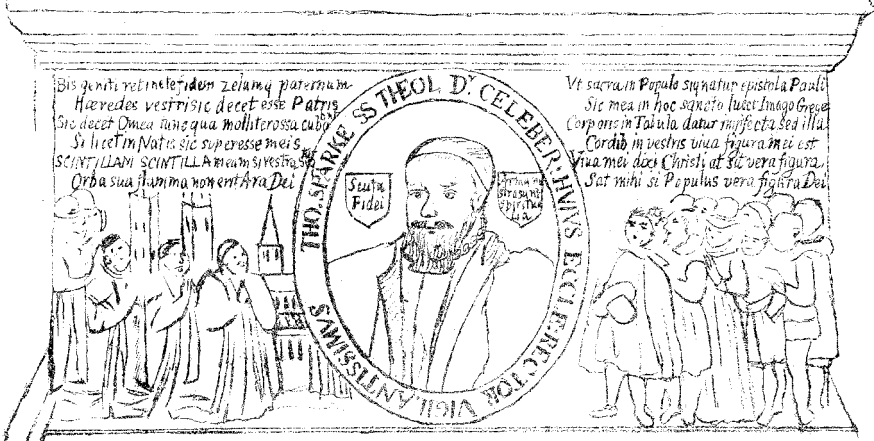 Bis geniti retinete fidem zelumq paternum
Hæredes vestri sic decet esse Patris
Sic decet O mea tunc qua molliter ossa cubabunt
Si licet in Natis sic superesse meis
SCINTILLAM SCINTILLA meam si vestra
Orba sua flamma non erit Ara Dei
THO. SPARKE SS THEOL Dr. CELEBER: HVIVS ECCLÆ: RECTOR VIGILANTISSIMVS
Scutū
Fidei
Vt sacra in Populo signatur epistola Pauli
Sic mea in hoc sancto lucet Imago Grege
Corporis in Tabula datur imperfecta sed illa
Cordib, in vestris viva figura mei est
Viua mei dixi Christi at sit vera figura,
Sat mihi si Populus vera figura Dei